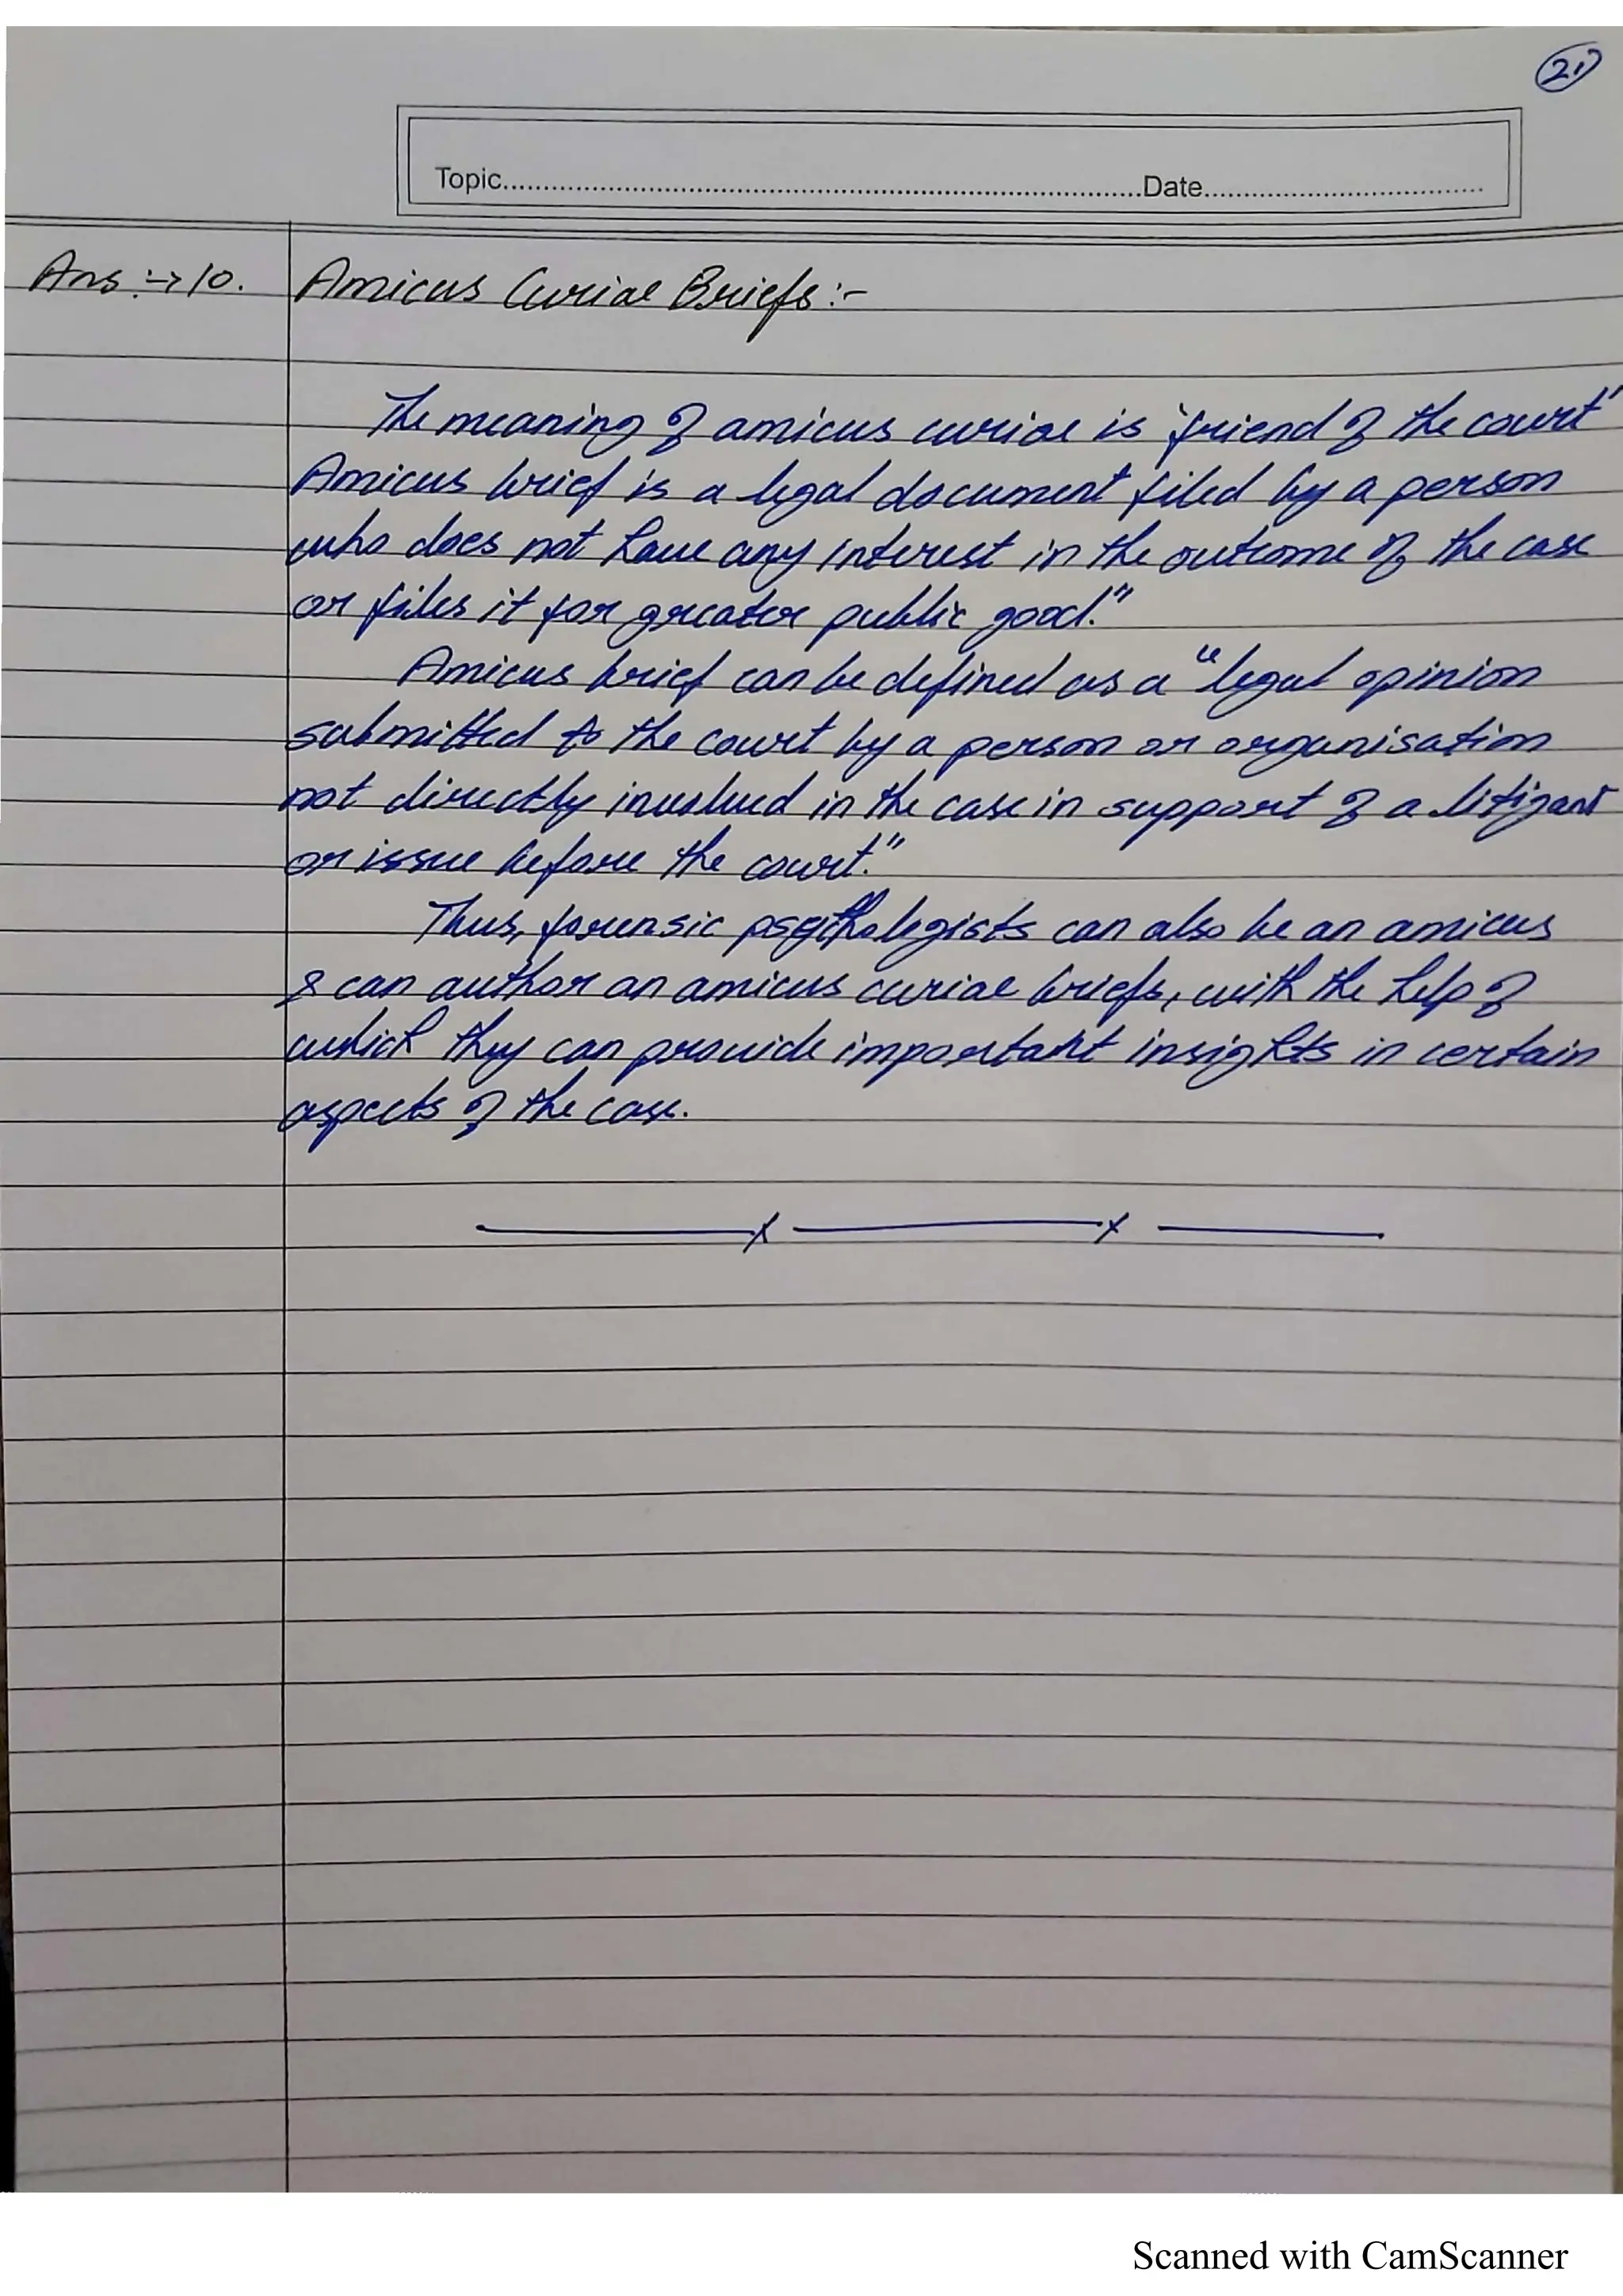 21
Topic..........Date..........
Ans :→ 10. Amicus Curiae Briefs :-
The meaning of amicus curiae is "friend of the court"
Amicus brief is a legal document filed by a person
who does not have any interest in the outcome of the case
or files it for greater public good."
Amicus brief can be defined as a "legal opinion
submitted to the court by a person or organisation
not directly involved in the case in support of a litigant
or issue before the court."
Thus, forensic psychologists can also be an amicus
& can author an amicus curiae briefs, with the help of
which they can provide important insights in certain
aspects of the case.
Scanned with CamScanner